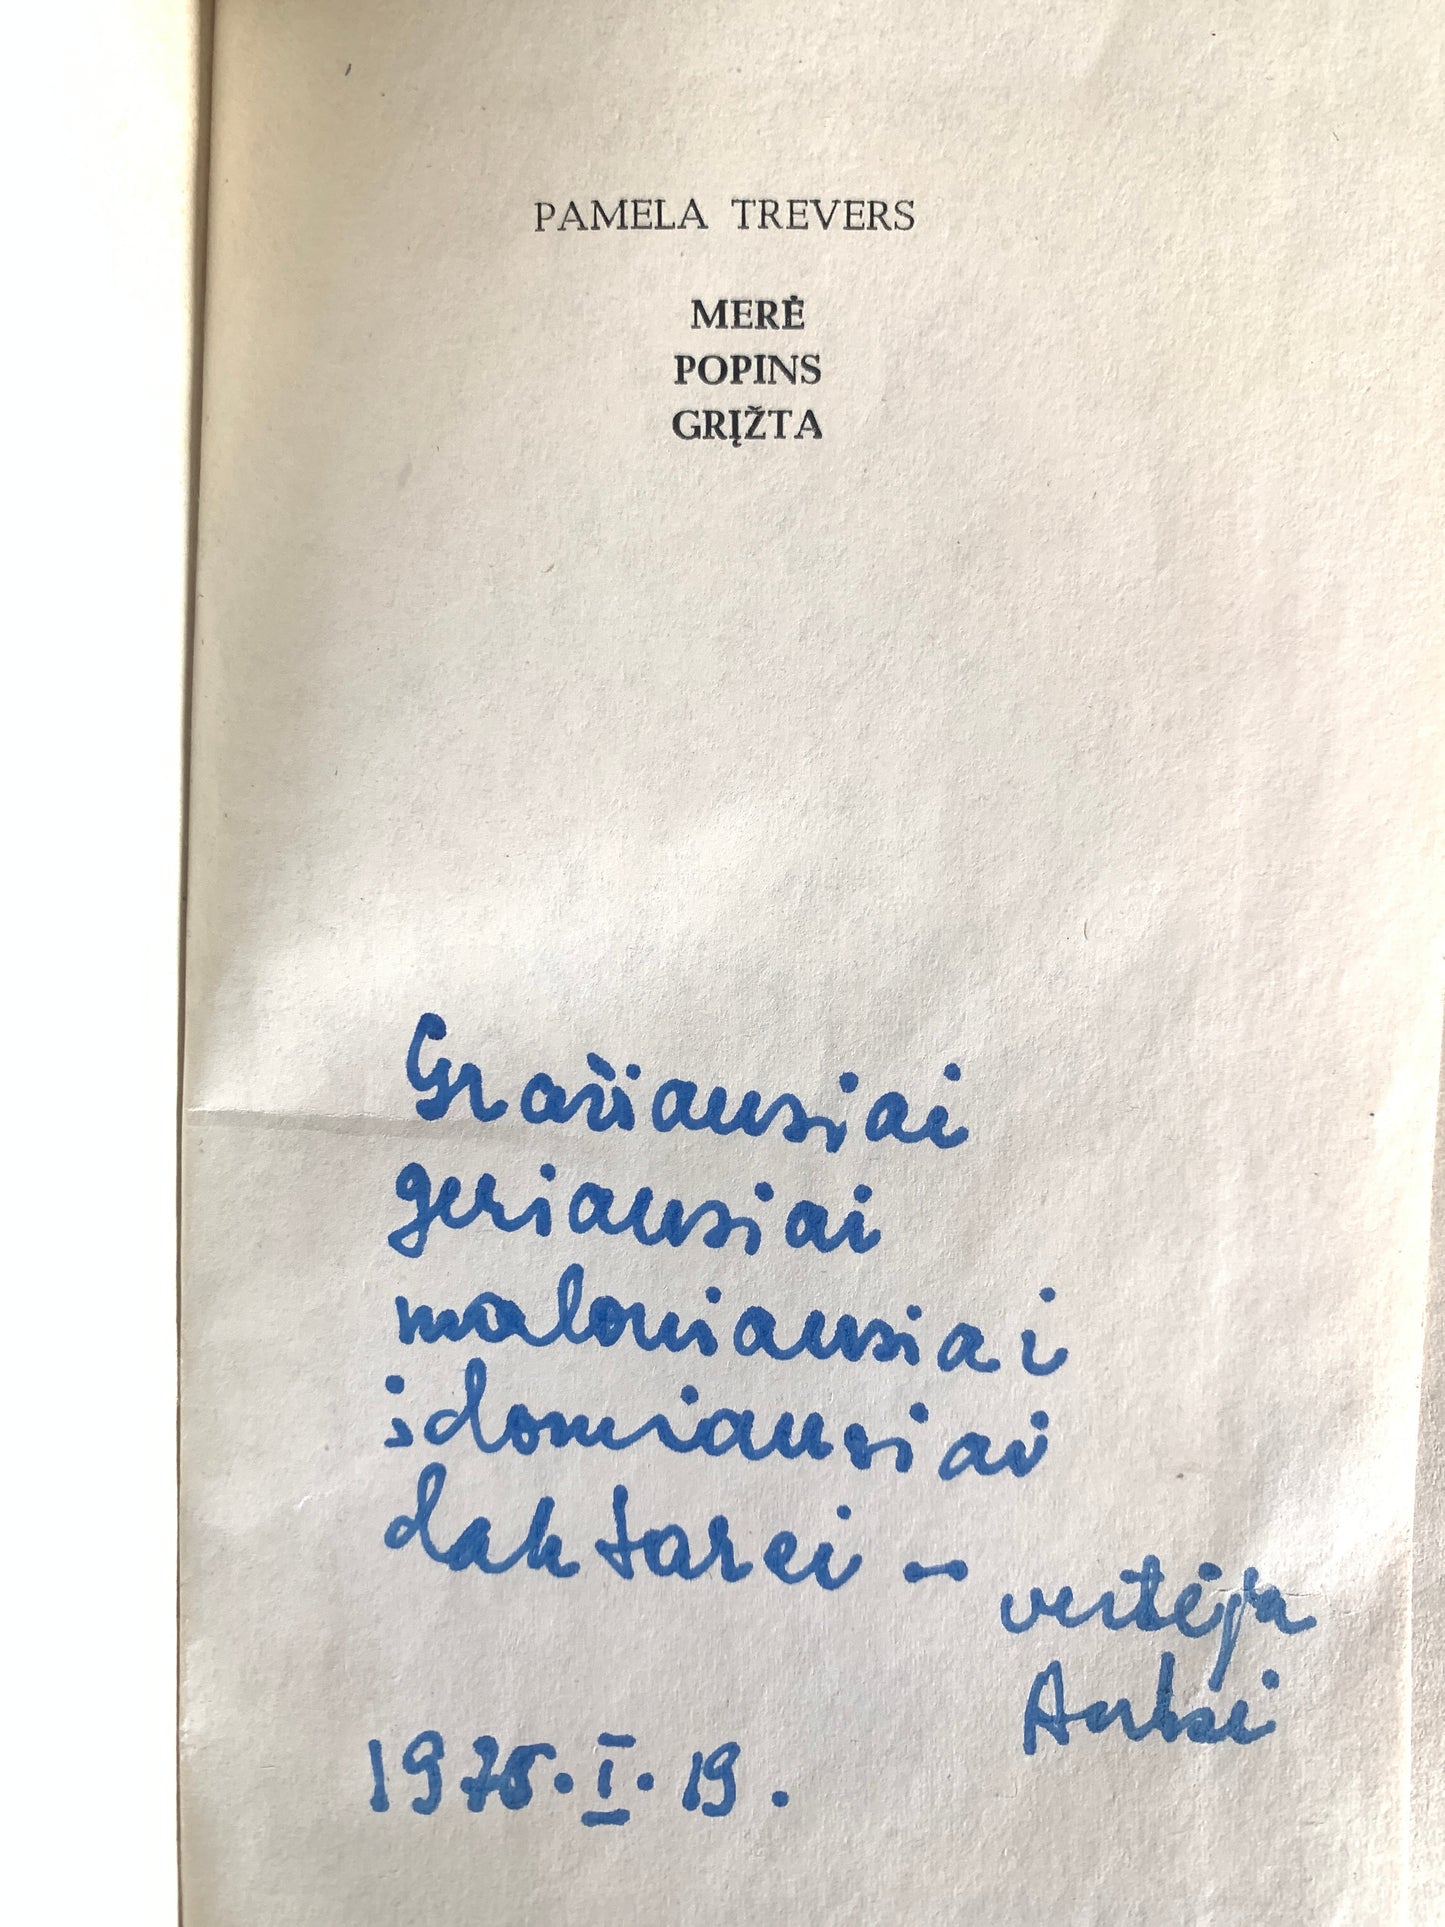 PAMELA TREVERS
MERĖ
POPINS
GRĮŽTA
Gražiausiai
geriausiai
maloniausiai
įdomiausiai
daktarei –
vertėja